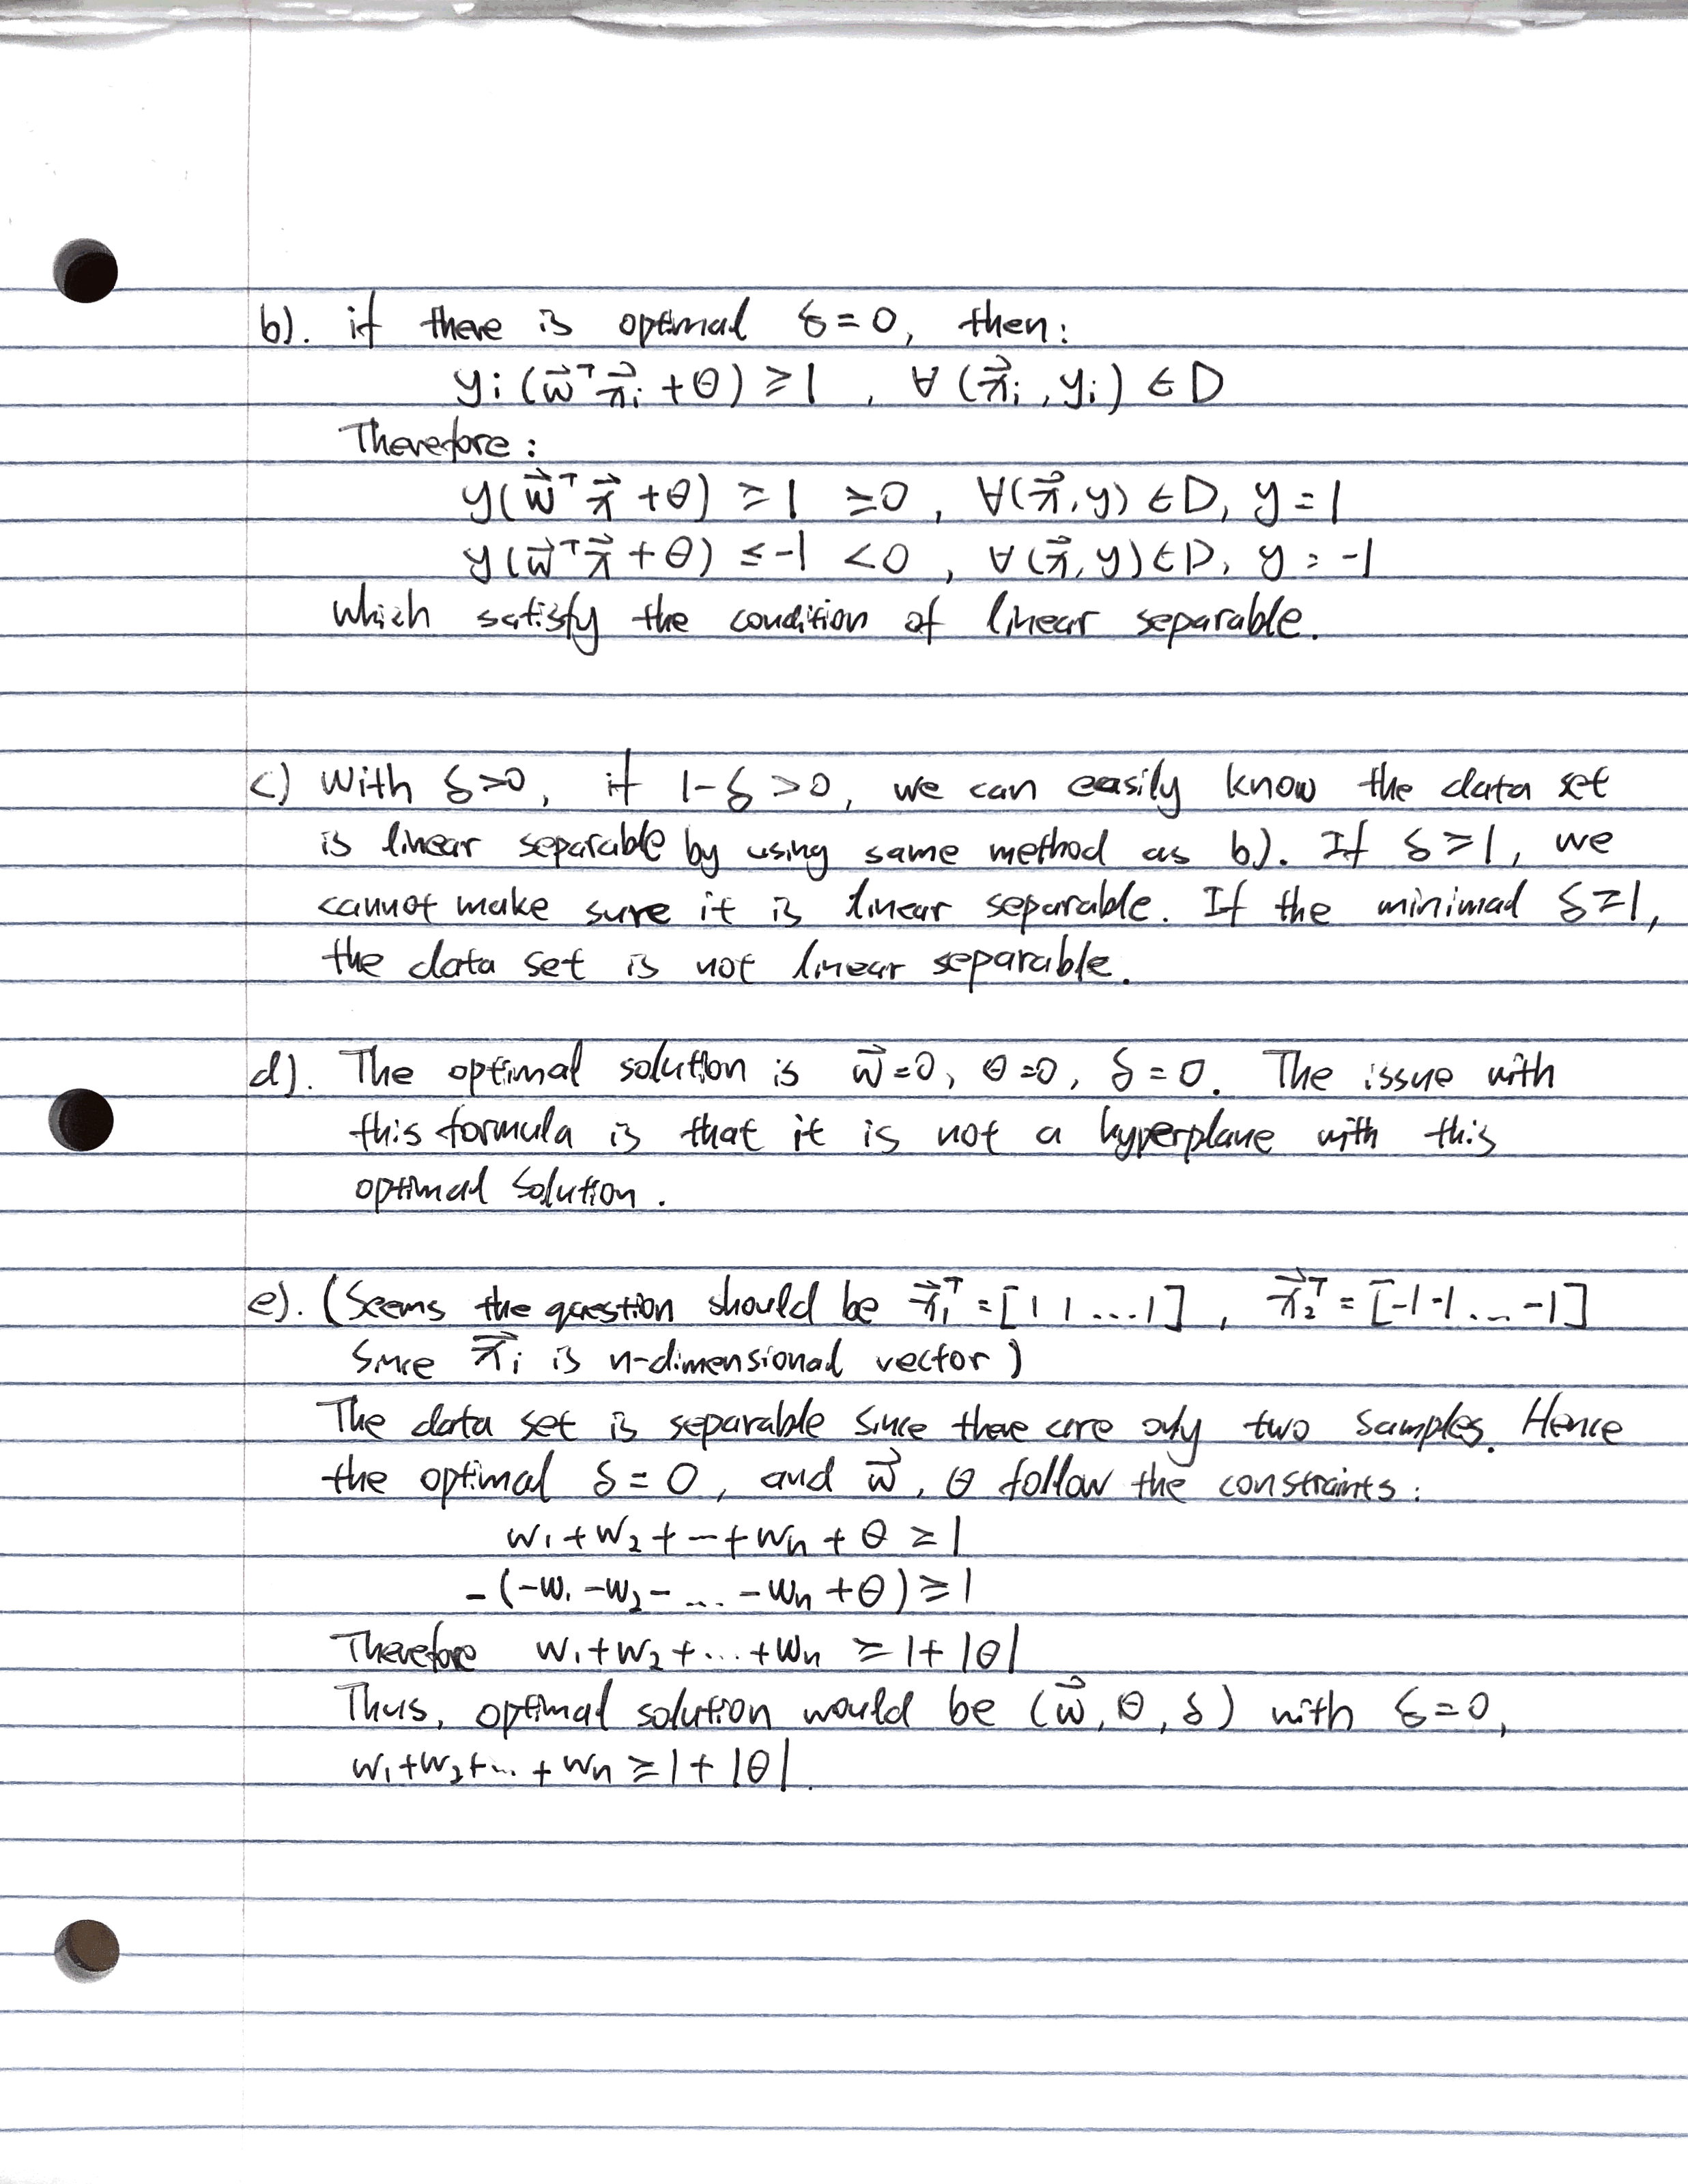 b). if there is optimal δ=0, then:
yi(w⃗ᵀx⃗i+θ) ≥1, ∀(x⃗i, yi) ∈D
Therefore:
y(w⃗ᵀx⃗+θ) ≥1 ≥0, ∀(x⃗,y) ∈D, y=1
y(w⃗ᵀx⃗+θ) ≤-1 <0, ∀(x⃗,y)∈D, y=-1
which satisfy the condition of linear separable.
c) With δ>0, if 1-δ>0, we can easily know the data set
is linear separable by using same method as b). If δ≥1, we
cannot make sure it is linear separable. If the minimal δ≥1,
the data set is not linear separable.
d). The optimal solution is w⃗=0, θ=0, δ=0. The issue with
this formula is that it is not a hyperplane with this
optimal solution.
e). (Seems the question should be x⃗₁ᵀ=[1 1 ... 1], x⃗₂ᵀ=[-1 -1 ... -1]
Since x⃗i is n-dimensional vector)
The data set is separable since there are only two samples. Hence
the optimal δ=0, and w⃗, θ follow the constraints:
w₁+w₂+...+wn+θ ≥1
-(-w₁-w₂-...-wn+θ)≥1
Therefore w₁+w₂+...+wn ≥1+|θ|
Thus, optimal solution would be (w⃗, θ, δ) with δ=0,
w₁+w₂+...+wn ≥1+|θ|.